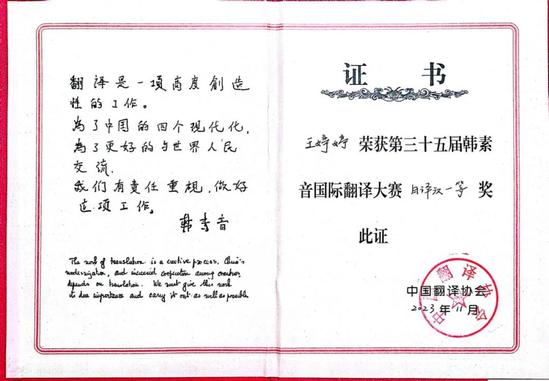 翻译是一項高度創造
性的工作。
為了中國的四个现代化,
為了更好的与世界人民
交流.
我们有责任重視,做好
这项工作。
韩素音
The work of translation is a creative process. China's
modernization, and increased cooperation among countries,
depends on translation. We must give this work
its due importance and carry it out as well as possible.
证 书
王婷婷 荣获第三十五届韩素
音国际翻译大赛 日译汉一等 奖
此证
中国翻译协会
2023年11月
中国翻译协会